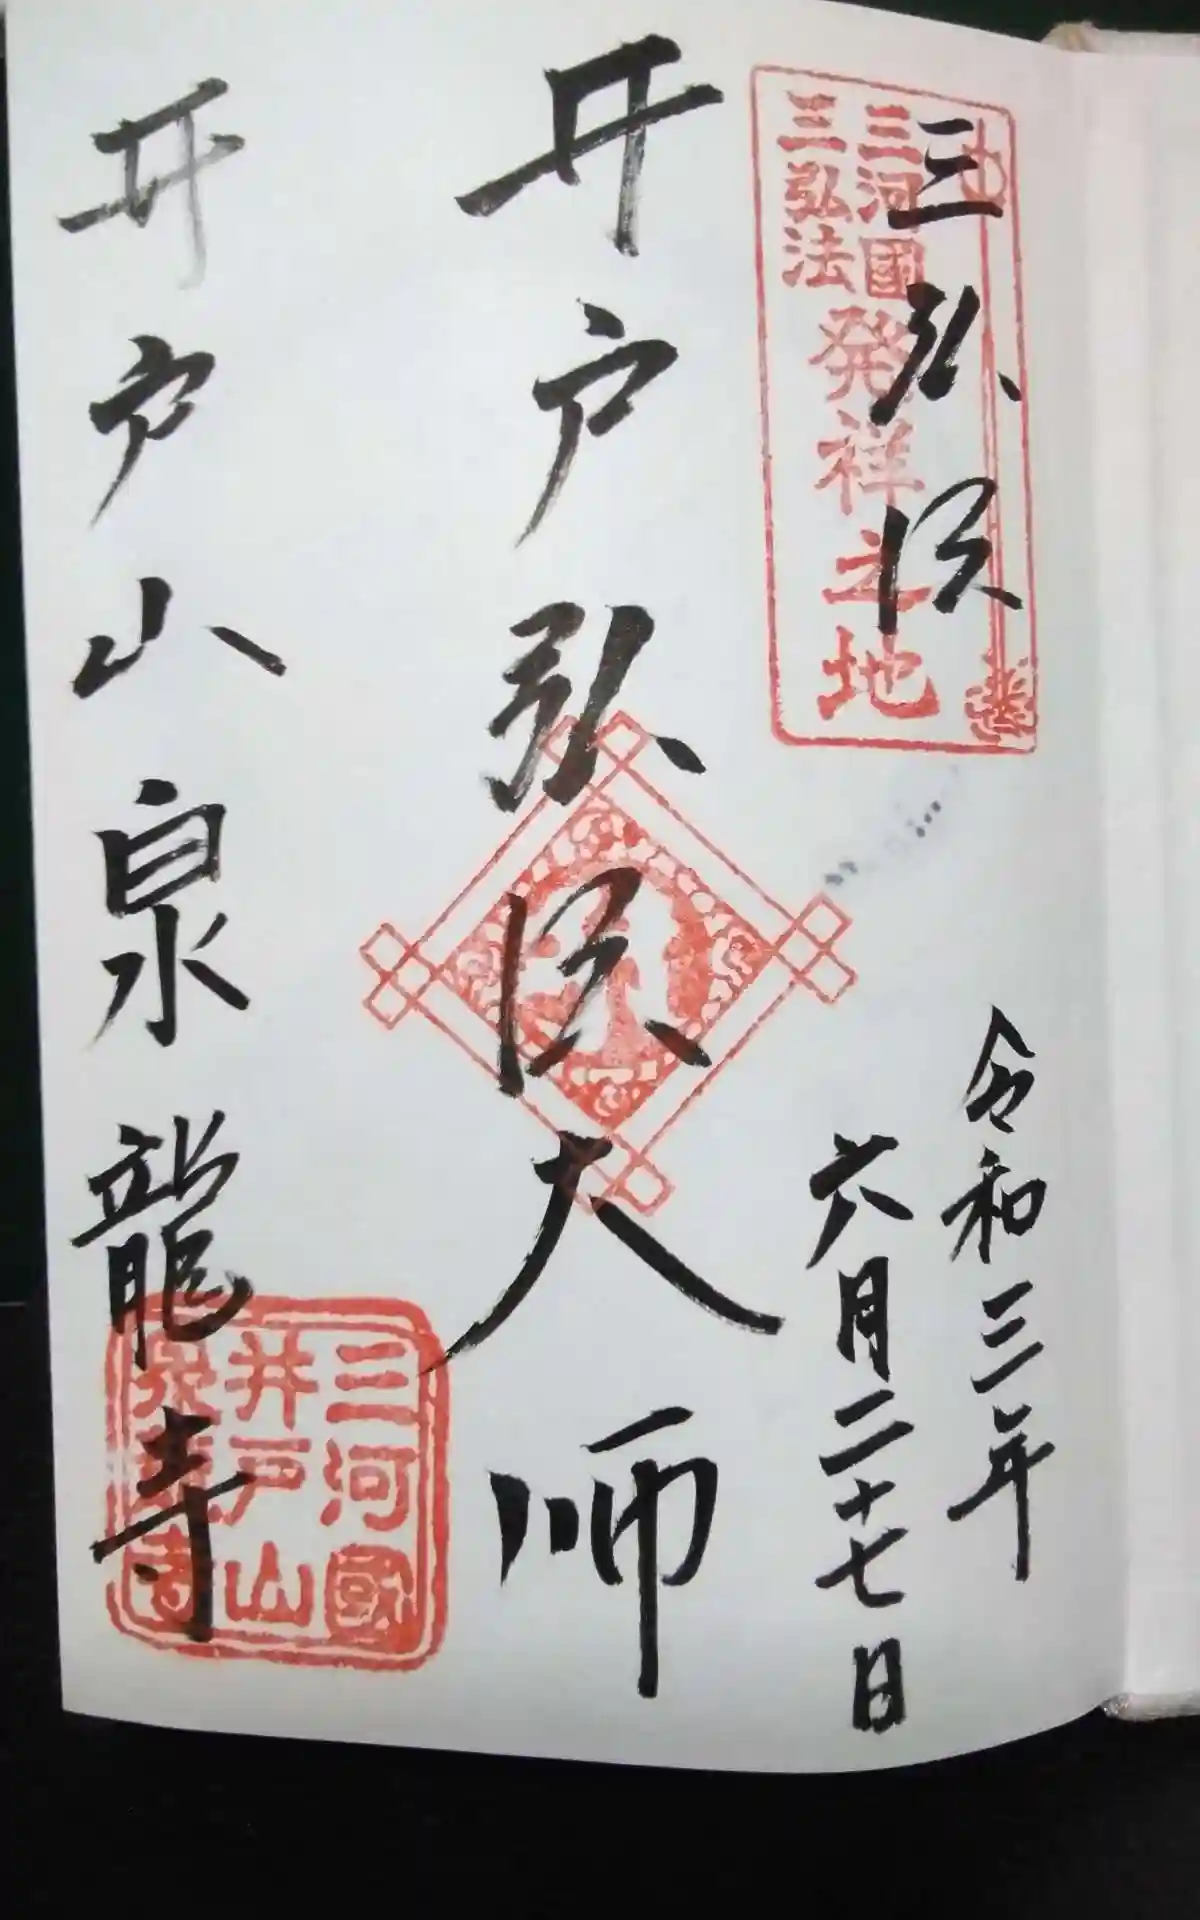 三弘法
三河國
三弘法
発祥之地
令和三年
六月二十七日
井戸弘法大師
井戸山泉龍寺
三河國
井戸山
泉龍寺